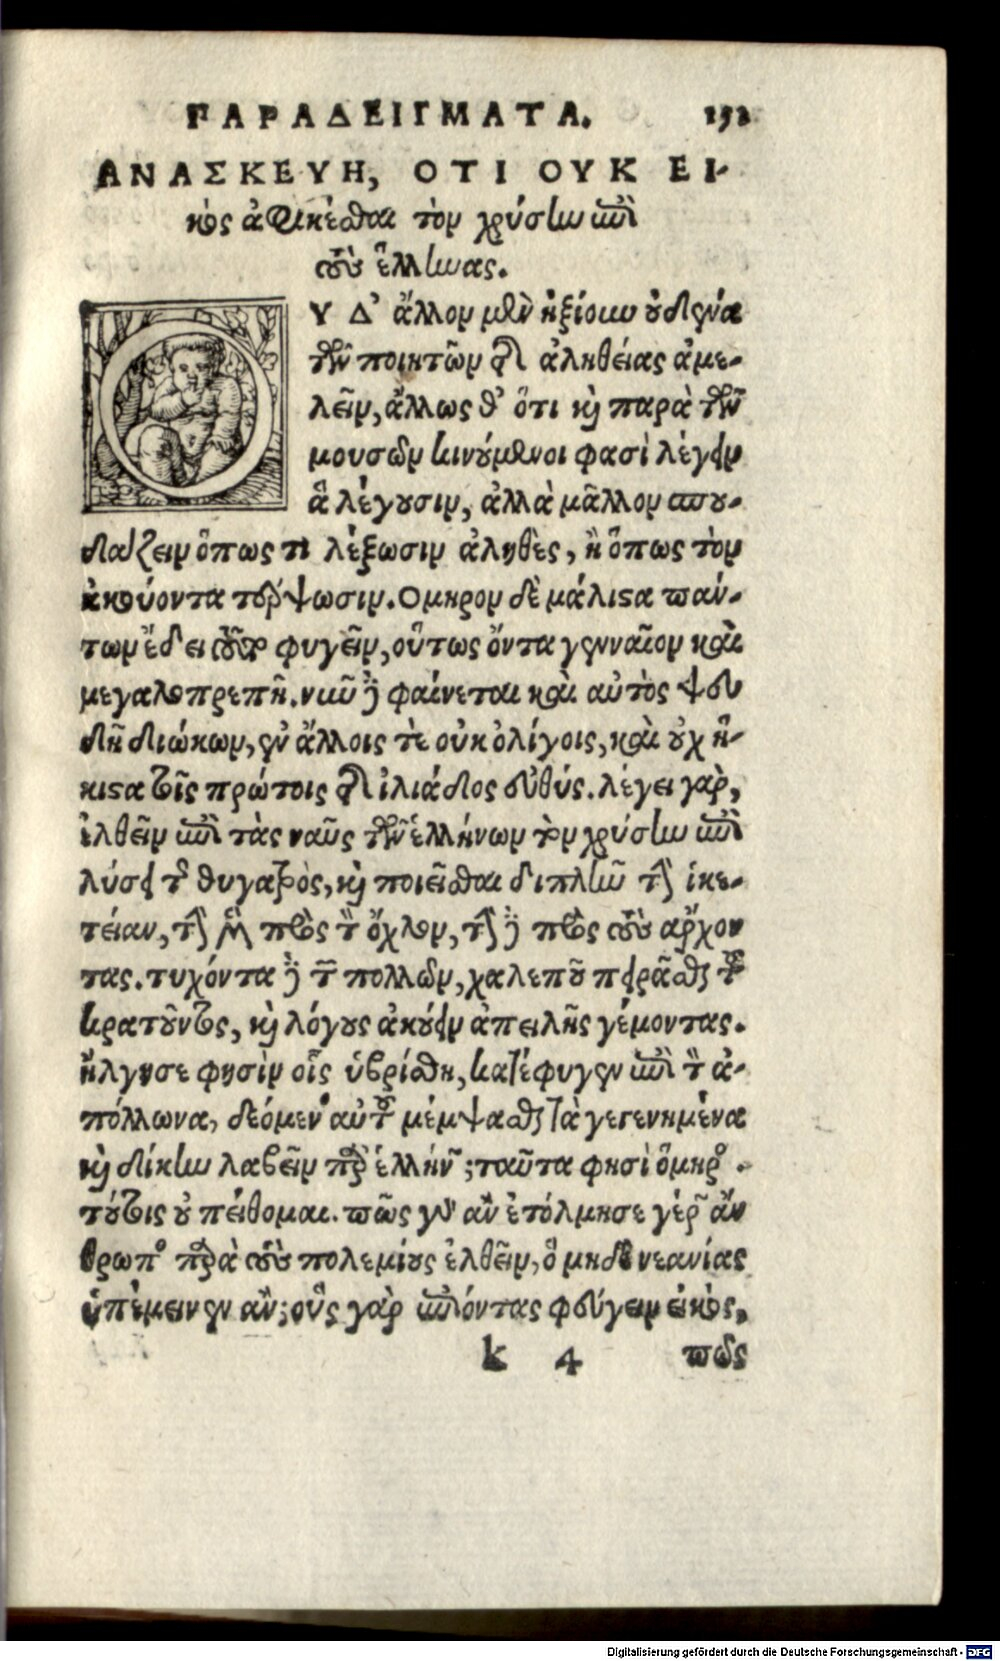 ΠΑΡΑΔΕΙΓΜΑΤΑ. 152
ΑΝΑΣΚΕΥΗ, ΟΤΙ ΟΥΚ ΕΙ-
κὸς ἀφικέσθαι τὸν χρύσην ἐπὶ
τοὺς ἕλληνας.
ΟΥ Δ' ἄλλον μὲν ἠξίουν οὐδένα
τῶν ποιητῶν τῆς ἀληθείας ἀμε-
λεῖν, ἄλλως θ' ὅτι καὶ παρὰ τῶν
μουσῶν κινούμενοι φασὶ λέγειν
ἃ λέγουσιν, ἀλλὰ μᾶλλον σπου-
δάζειν ὅπως τι λέξωσιν ἀληθὲς, ἢ ὅπως τὸν
ἀκούοντα τέρψωσιν. Ομηρον δὲ μάλιστα πάν-
των ἔδει τοῦτο φυγεῖν, οὕτως ὄντα γενναῖον καὶ
μεγαλοπρεπῆ. νυῦ δὲ φαίνεται καὶ αὐτὸς ψευ
δῆ διώκων, ἐν ἄλλοις τὲ οὐκ ὀλίγοις, καὶ οὐχ ἥ-
κιστα τοῖς πρώτοις τῆς ἰλιάδος εὐθύς. λέγει γὰρ,
ἐλθεῖν ἐπὶ τὰς ναῦς τῶν ἑλλήνων τὸν χρύσην ἐπὶ
λύσει τῆς θυγατρὸς, καὶ ποιεῖσθαι διπλῆν τὴν ἱκε-
τείαν, τὴν μὲν πρὸς τὸν ὄχλον, τὴν δὲ πρὸς τοὺς ἄρχον
τας. τυχόντα δὲ τῶν πολλῶν, χαλεποῦ πειρᾶσθαι τοῦ
κρατοῦντος, καὶ λόγους ἀκούειν ἀπειλῆς γέμοντας.
ἤλγησε φησὶν οἷς ὑβρίσθη, κατέφυγεν ἐπὶ τὸν ἀ-
πόλλωνα, δεόμενος αὐτοῦ μέμψασθαι τὰ γεγενημένα
καὶ δίκην λαβεῖν παρὰ ἑλλήνων; ταῦτα φησὶ ὅμηρος.
τούτοις οὐ πείθομαι. πῶς γὰρ ἂν ἐτόλμησε γέρων ἄν
θρωπος παρὰ τοὺς πολεμίους ἐλθεῖν, ὃ μηδὲ νεανίας
ὑπέμεινεν ἄν; οὓς γὰρ ἐπιόντας φεύγειν εἰκὸς,
k 4 πῶς
Digitalisierung gefördert durch die Deutsche Forschungsgemeinschaft - DFG